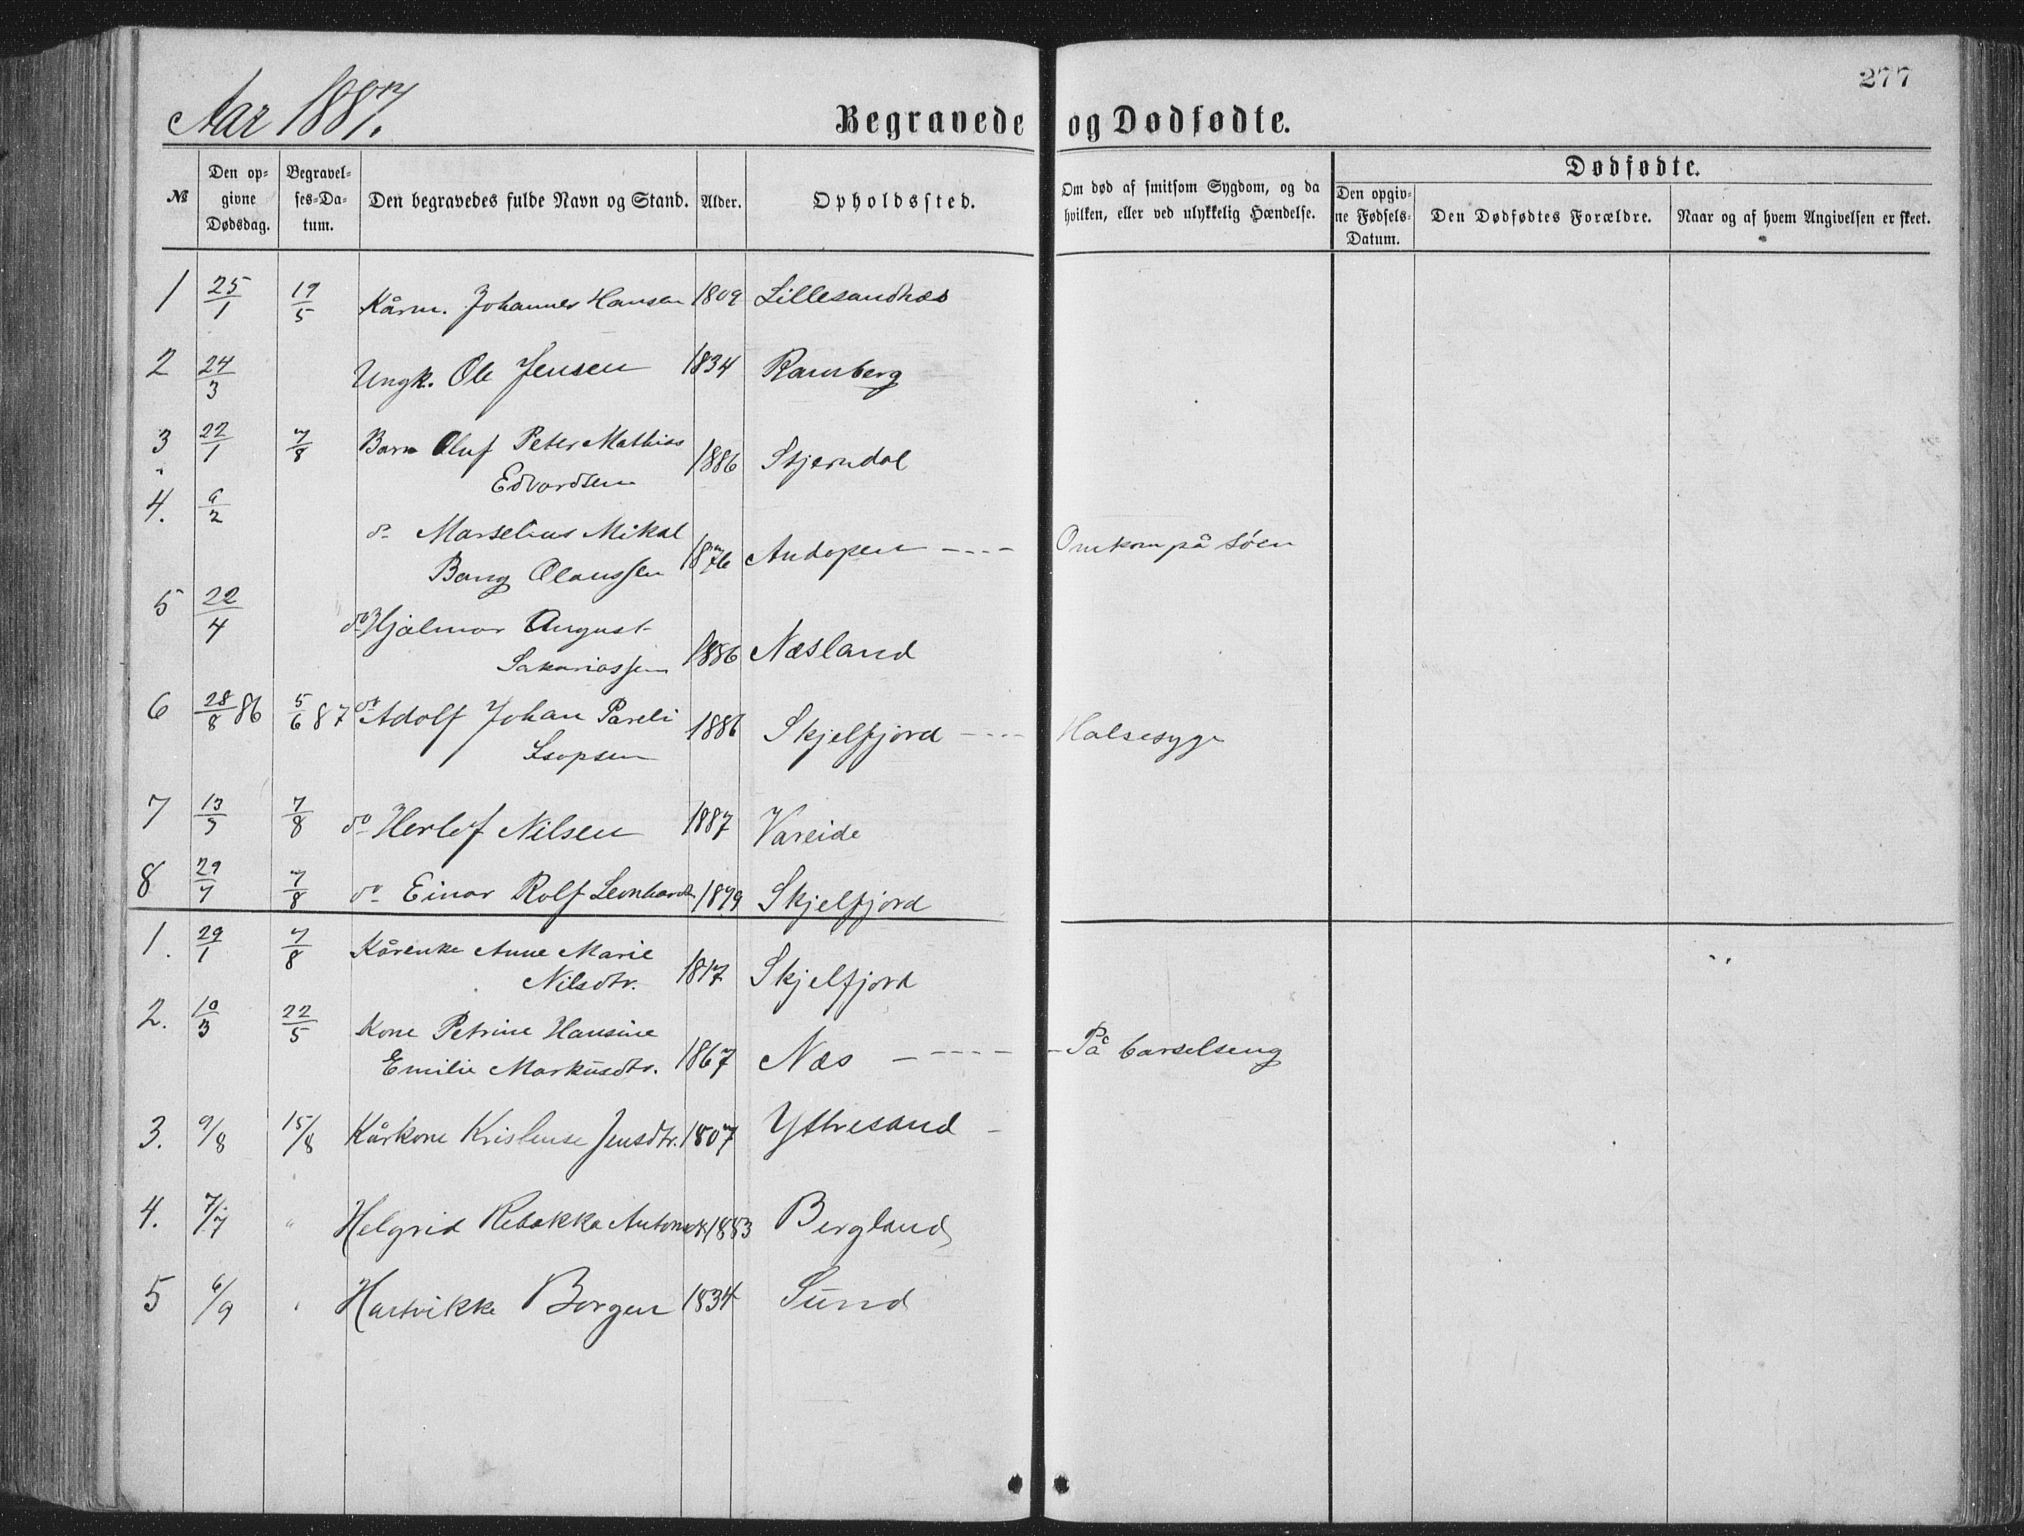 277
Aar 1887.
Begravede og Dødfødte.
№
Den opgivne Dødsdag.
Begravelses-Datum.
Den begravedes fulde Navn og Stand.
Alder.
Opholdssted.
Om død af smitsom Sygdom, og da hvilken, eller ved ulykkelig Hændelse.
Dødfødte.
Den opgivne Fødsels-Datum.
Den Dødfødtes Forældre.
Naar og af hvem Angivelsen er skeet.
1 25/1 19/5 Kårm. Johannes Hansen 1809 Lillesandnæs
2 24/3 Ungk. Ole Jensen 1834 Ramberg
3 22/1 7/8 Barn Oluf Peter Mathias
Edvardsen 1886 Stjerndal
4. 9/2 do Marselius Mikal
Bang Olaussen 1876 Andopen - - - - Omkom på søen
5 22/4 do Hjalmar August
Sakariassen 1886 Næsland
6 28/8 86 5/6 87 do Adolf Johan Pareli
Isopsen 1886 Skjelfjord - - - - Halsesyge
7 13/5 7/8 do Herlof Nilsen 1887 Vareide
8 29/7 7/8 do Einar Rolf Leonhards 1879 Skjelfjord
1. 29/1 7/8 Kårenke Anne Marie
Nilsdtr. 1817 Skjelfjord
2. 10/3 22/5 Kone Petrine Hansine
Emilie Markusdtr. 1867 Næs - - - - - På barselseng
3. 9/8 15/8 Kårkone Kristense Jensdtr. 1807 Yttresand -
4. 7/7 " Helgrid Rebekka Antonsdtr 1883 Bergland
5 6/9 " Hartvikke Borgen 1834 Sund